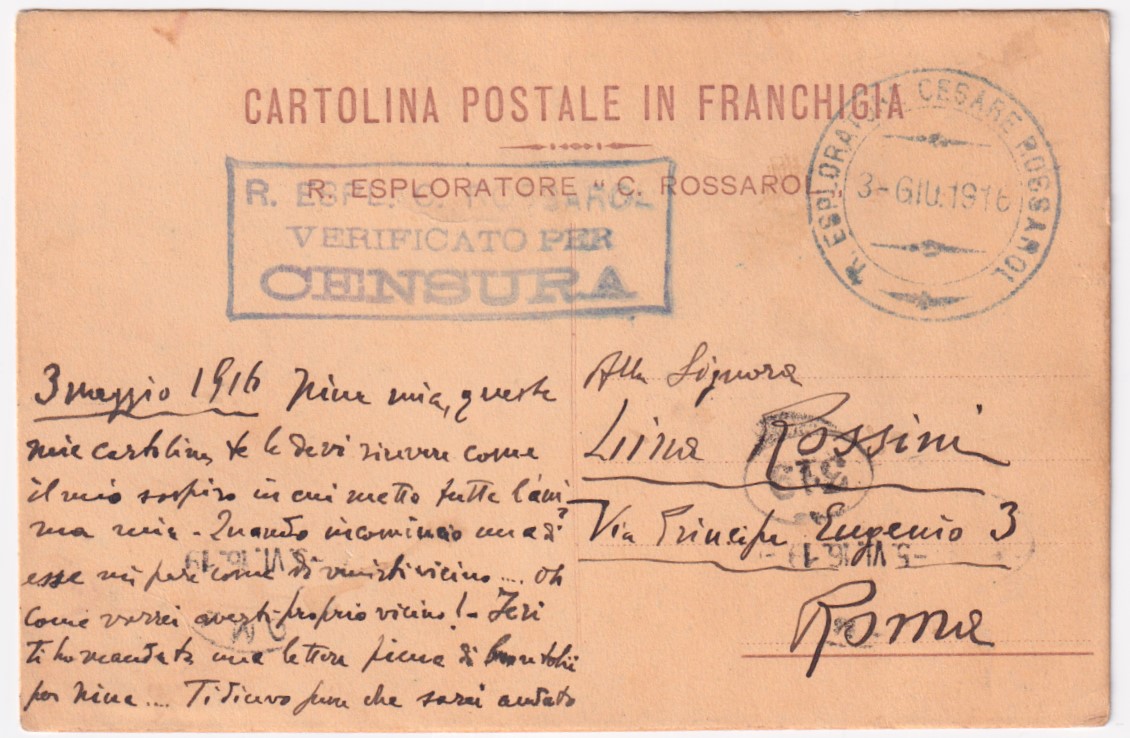 CARTOLINA POSTALE IN FRANCHIGIA
R. ESPLORATORE "C. ROSSAROL"
R. ESPL. C. ROSSAROL
VERIFICATO PER
CENSURA
R. ESPLORATORE CESARE ROSSAROL
3-GIU.1916
3 maggio 1916 Nina mia, queste
mie cartoline te le devi ricevere come
il mio sospiro in cui metto tutta l'ani-
ma mia - Quando incomincio una di
esse mi pare come di venirti vicino.... Oh
come vorrei averti proprio vicino! - Ieri
ti ho mandata una lettera piena di
per Nina.... Ti dicevo pure che sarei andato
Alla Signora
Lina Rossini
Via Principe Eugenio 3
Roma
-5.VI.16.19
-5.VI.16.19